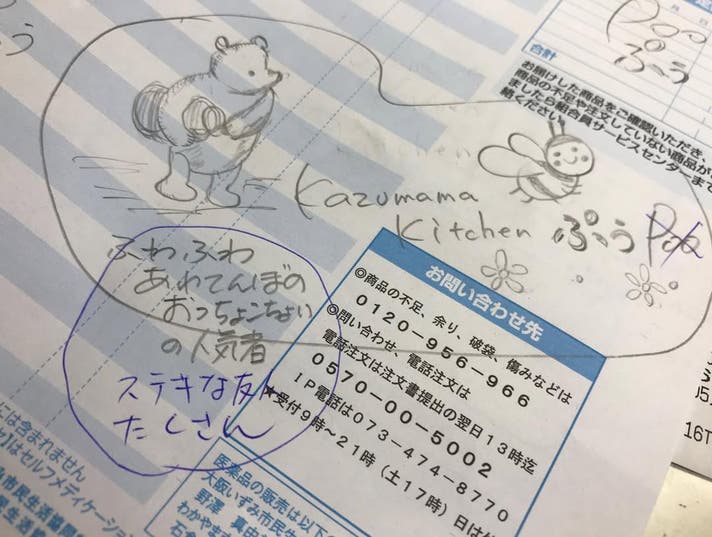 Poo
ぷーう
合計
お届けした商品をご確認いただき、
商品の不足や注文していない商品が
ましたら組合員サービスセンターまで
絡ください。
Kazumama
Kitchen ぷーう Poo
ふわふわ
あわてんぼの
おっちょこちょい
の人気者
ステキな友人
たくさん
お問い合わせ先
◎商品の不足、余り、破袋、傷みなどは
0120-956-966
◎問い合わせ、電話注文は
電話注文は注文書提出の翌日13時迄
0570-00-5002
IP電話は073-474-8770
★受付9時～21時(土17時)日は
には含まれません
はセルフメディケーション
医薬品の販売は以下の
大阪いずみ市民生
野澤 真由
わかやま
16T